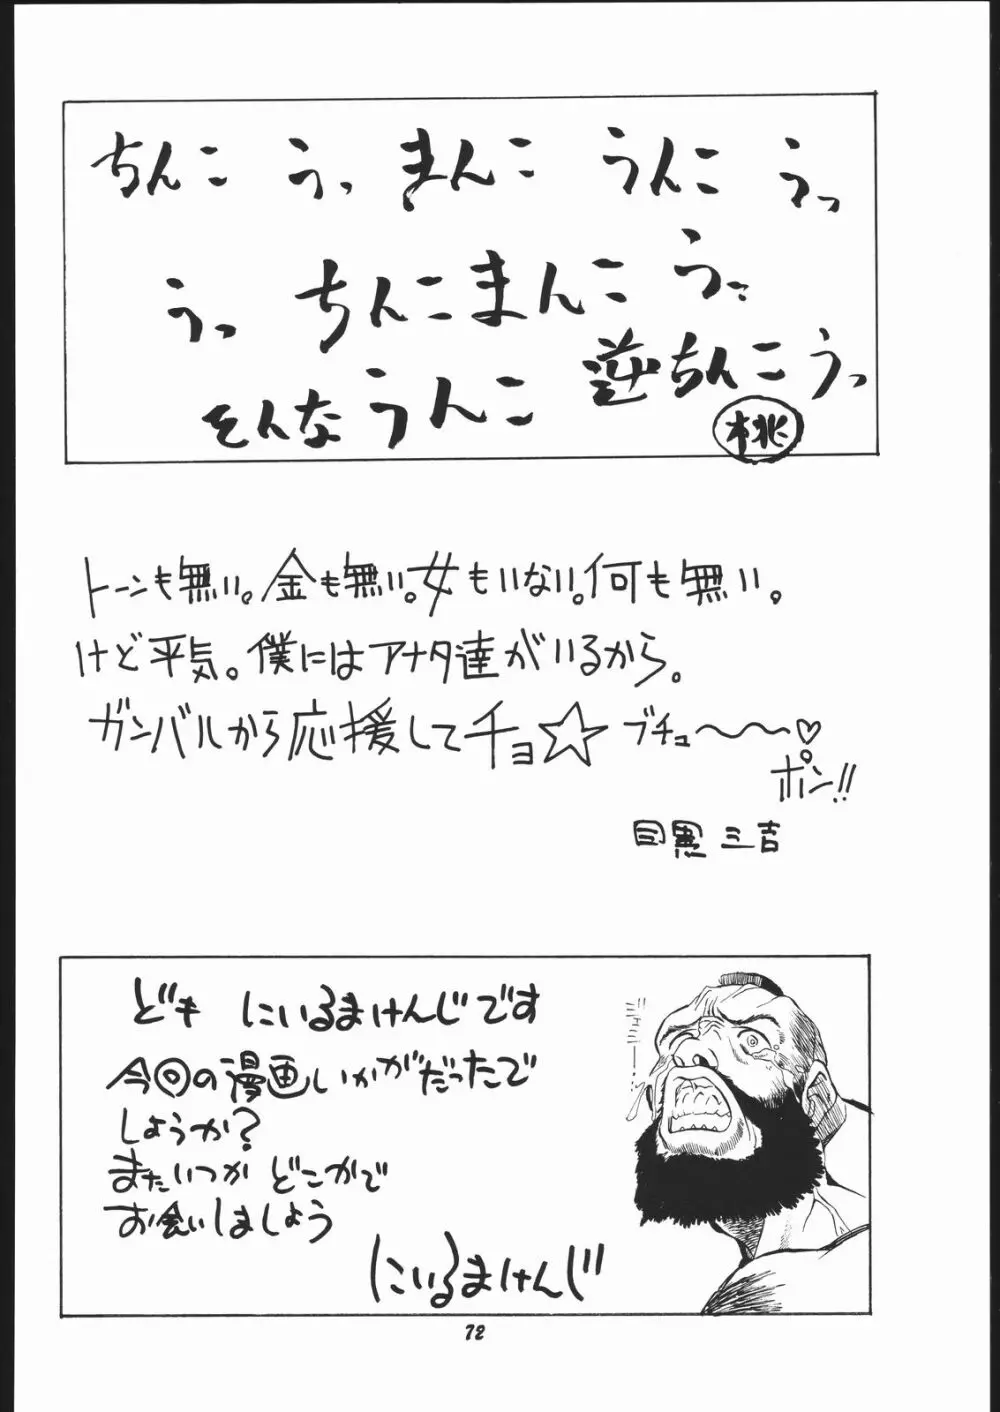 ちんこ うっ まんこ うんこ うっ
うっ ちんこまんこ うっ
そんなうんこ 逆ちんこうっ
桃
トーンも無い。金も無い。女もいない。何も無い。
けど平気。僕にはアナタ達がいるから。
ガンバルから応援してチョ☆ ブチュ〜〜〜♡
ポン!!
目黒 三吉
ども にいるまけんじです
今回の漫画いかがだったで
しょうか?
またいつか どこかで
お会いしましょう
にいるまけんじ
72